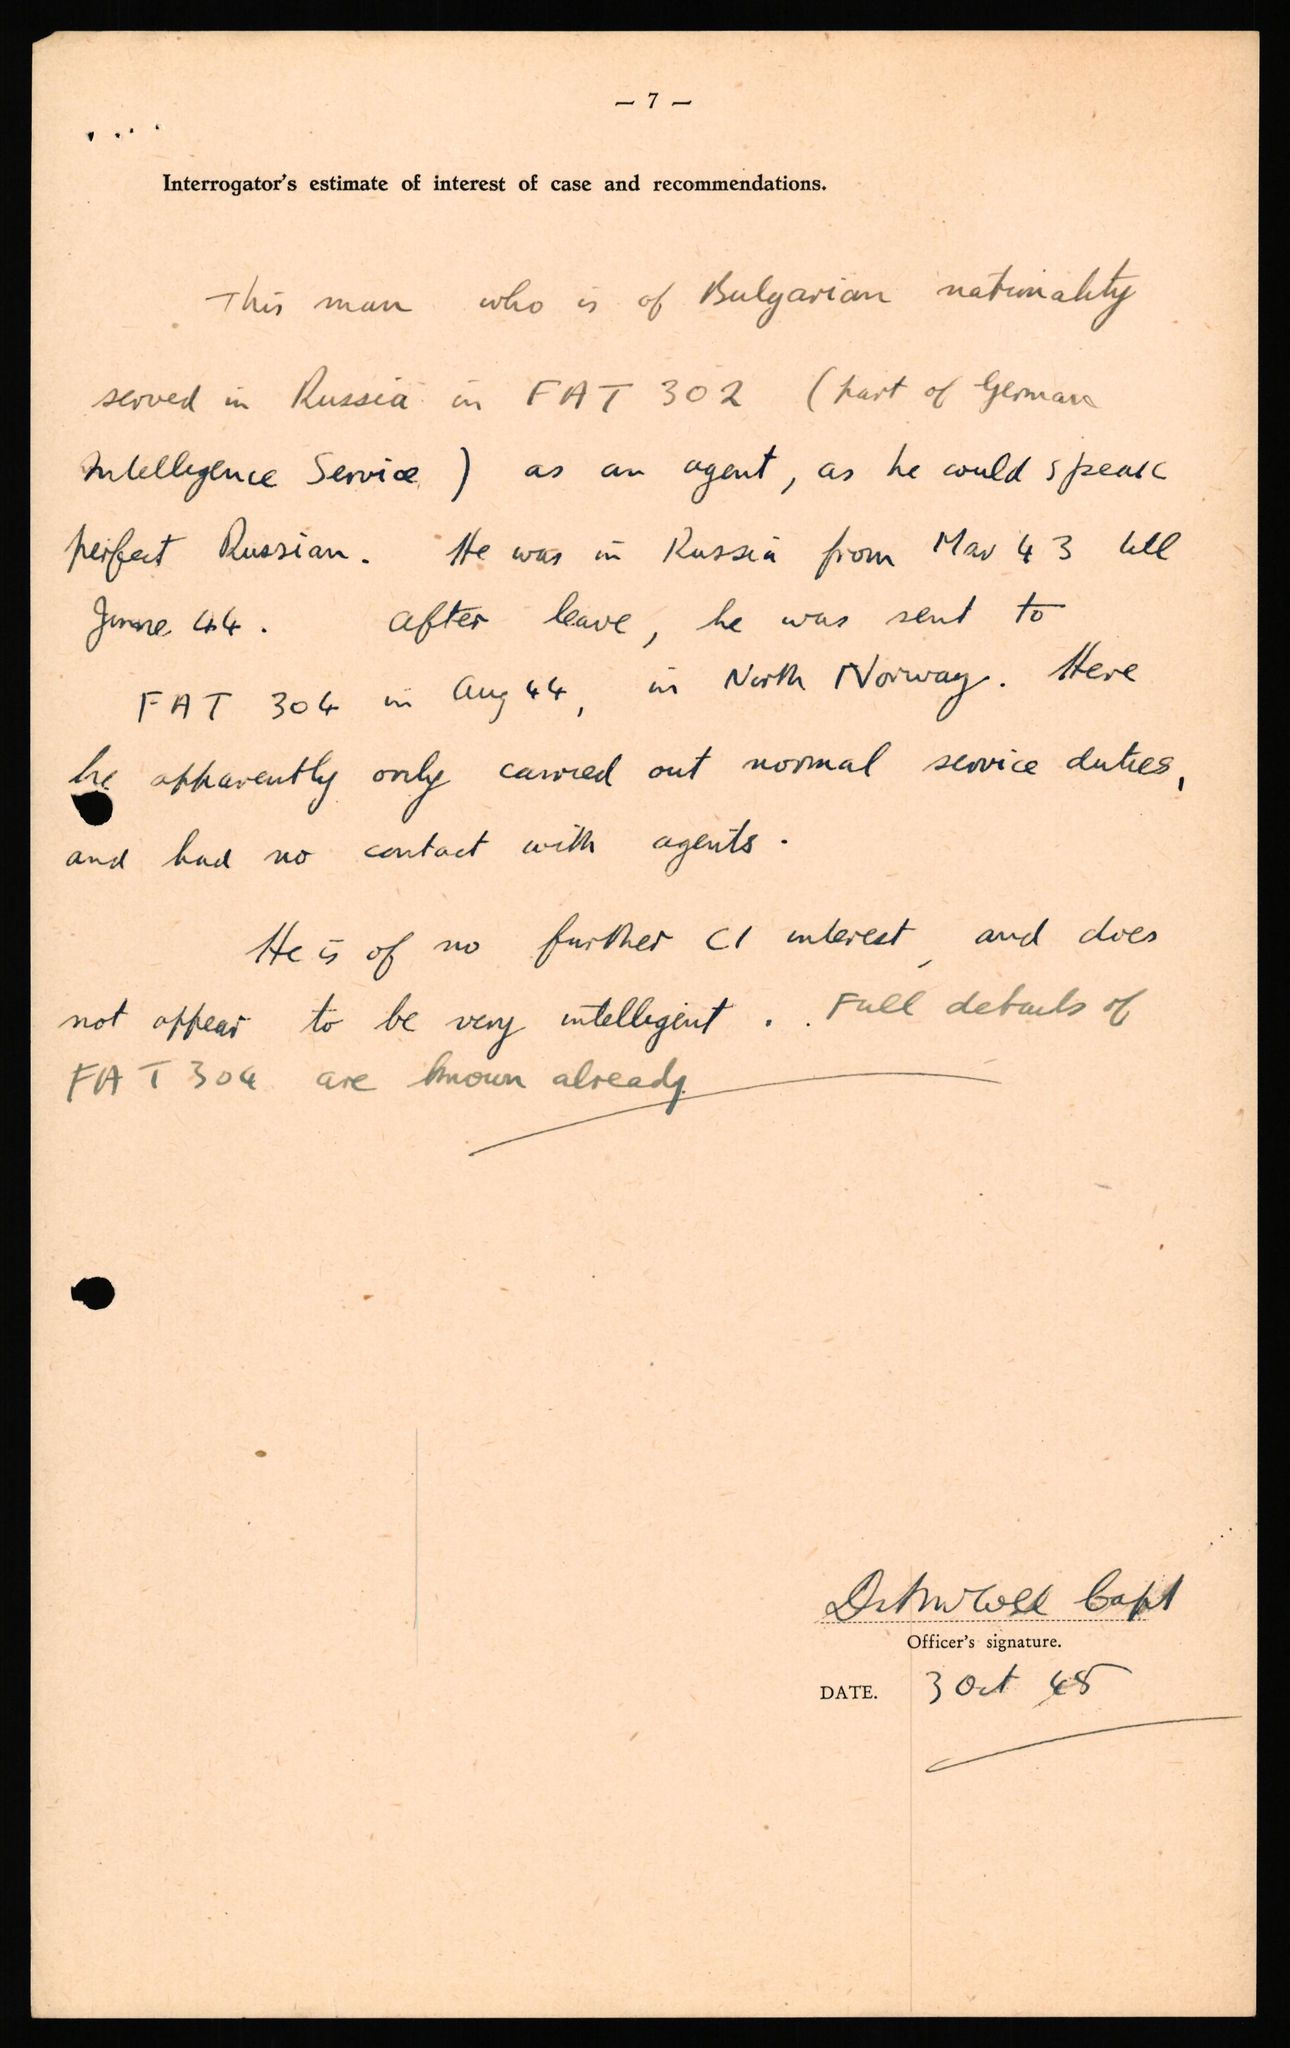 — 7 —
Interrogator's estimate of interest of case and recommendations.
This man who is of Bulgarian nationality
served in Russia in FAT 302 (part of German
Intelligence Service) as an agent, as he could speak
perfect Russian. He was in Russia from Mar 43 till
June 44. After leave, he was sent to
FAT 304 in Aug 44, in North Norway. Here
he apparently only carried out normal service duties,
and had no contact with agents.
He is of no further CI interest, and does
not appear to be very intelligent. Full details of
FAT 304 are known already
Capt
Officer's signature.
DATE. 3 Oct 45